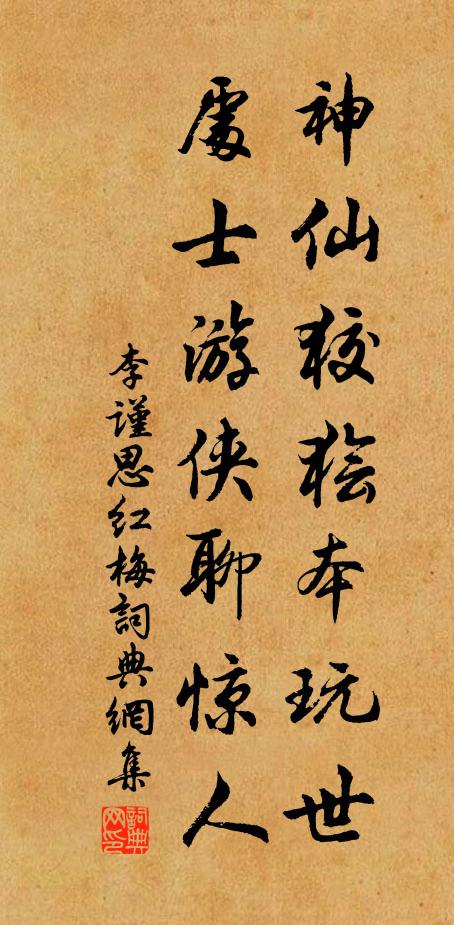 神仙狡狯本玩世
處士游俠聊惊人
李謹思紅梅詞典網集
詞典网印